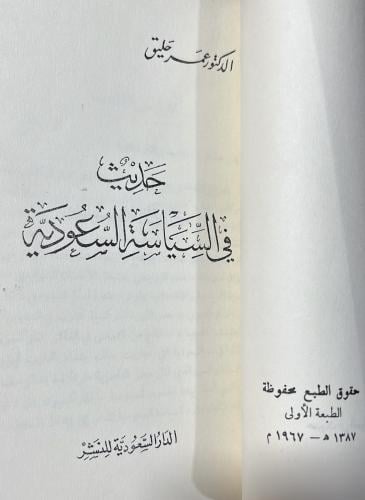 الدكتور عمر حليق
حديث
في السياسة السعودية
الدار السعودية للنشر
حقوق الطبع محفوظة
الطبعة الأولى
١٣٨٧ هـ – ١٩٦٧ م